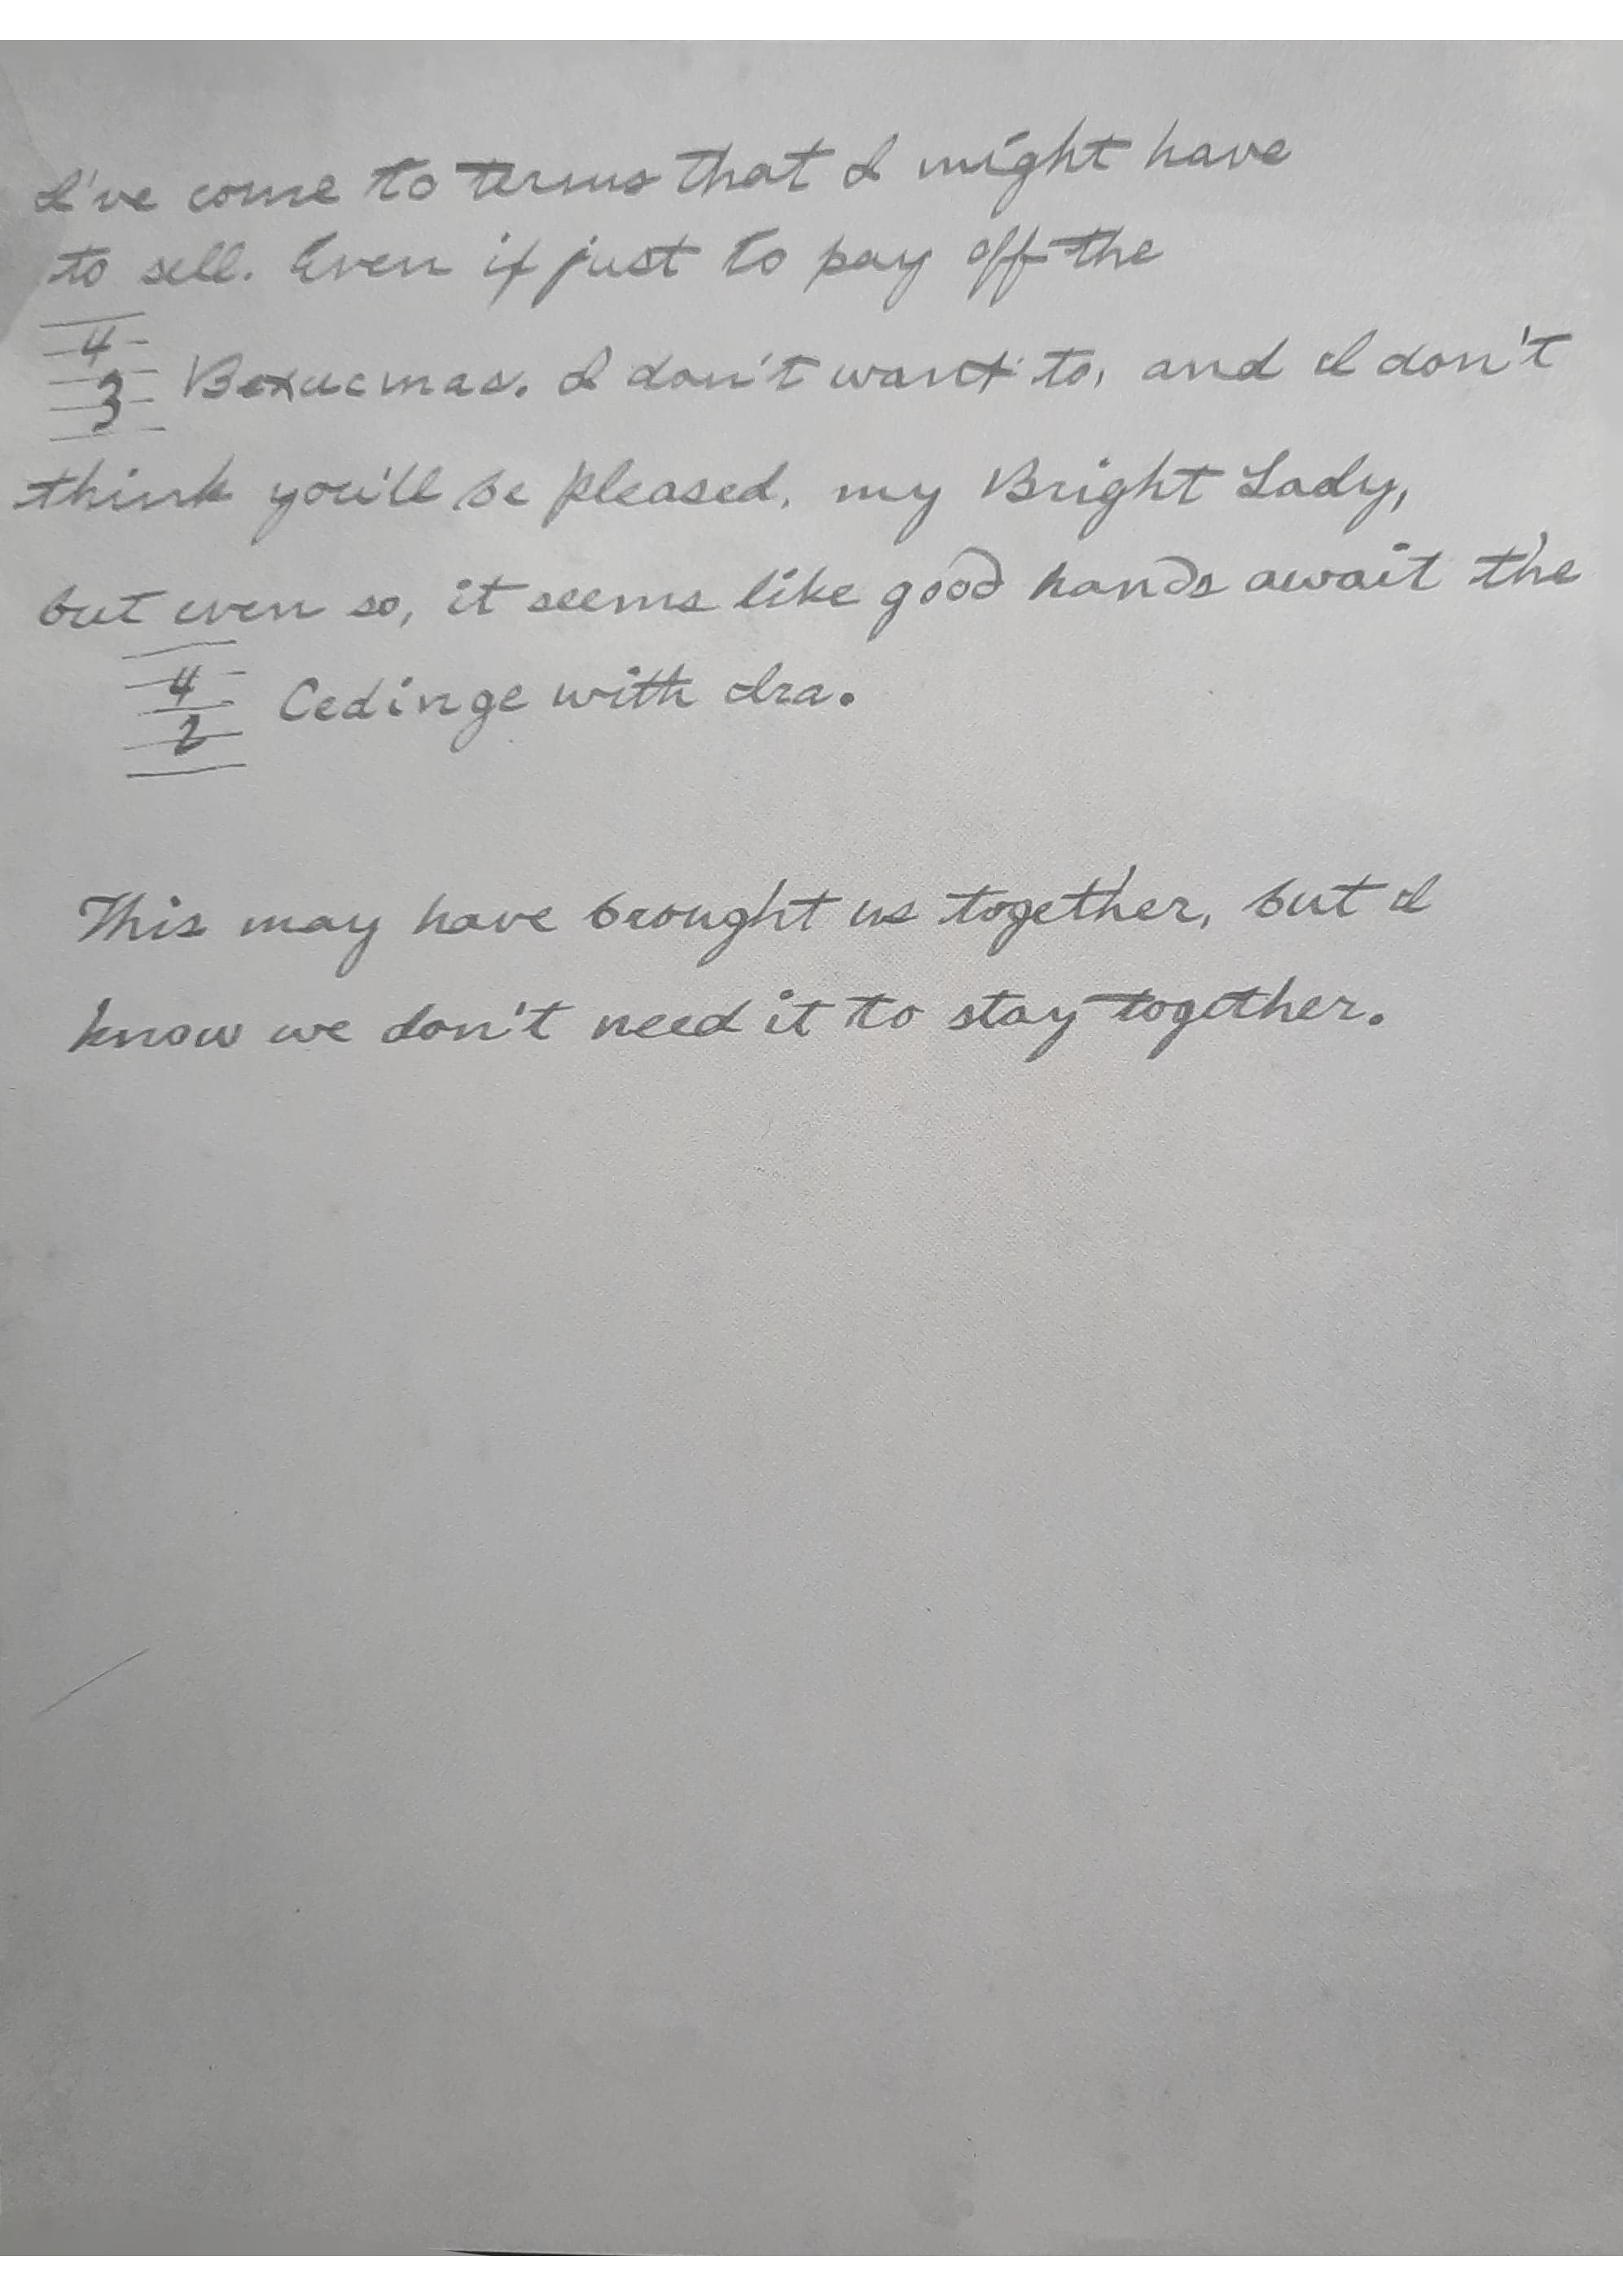 I've come to terms that I might have
to sell. Even if just to pay off the
4
3 Bexucmas. I don't want to, and I don't
think you'll be pleased, my Bright Lady,
but even so, it seems like good hands await the
4
2 Cedinge with Ira.
This may have brought us together, but I
know we don't need it to stay together.